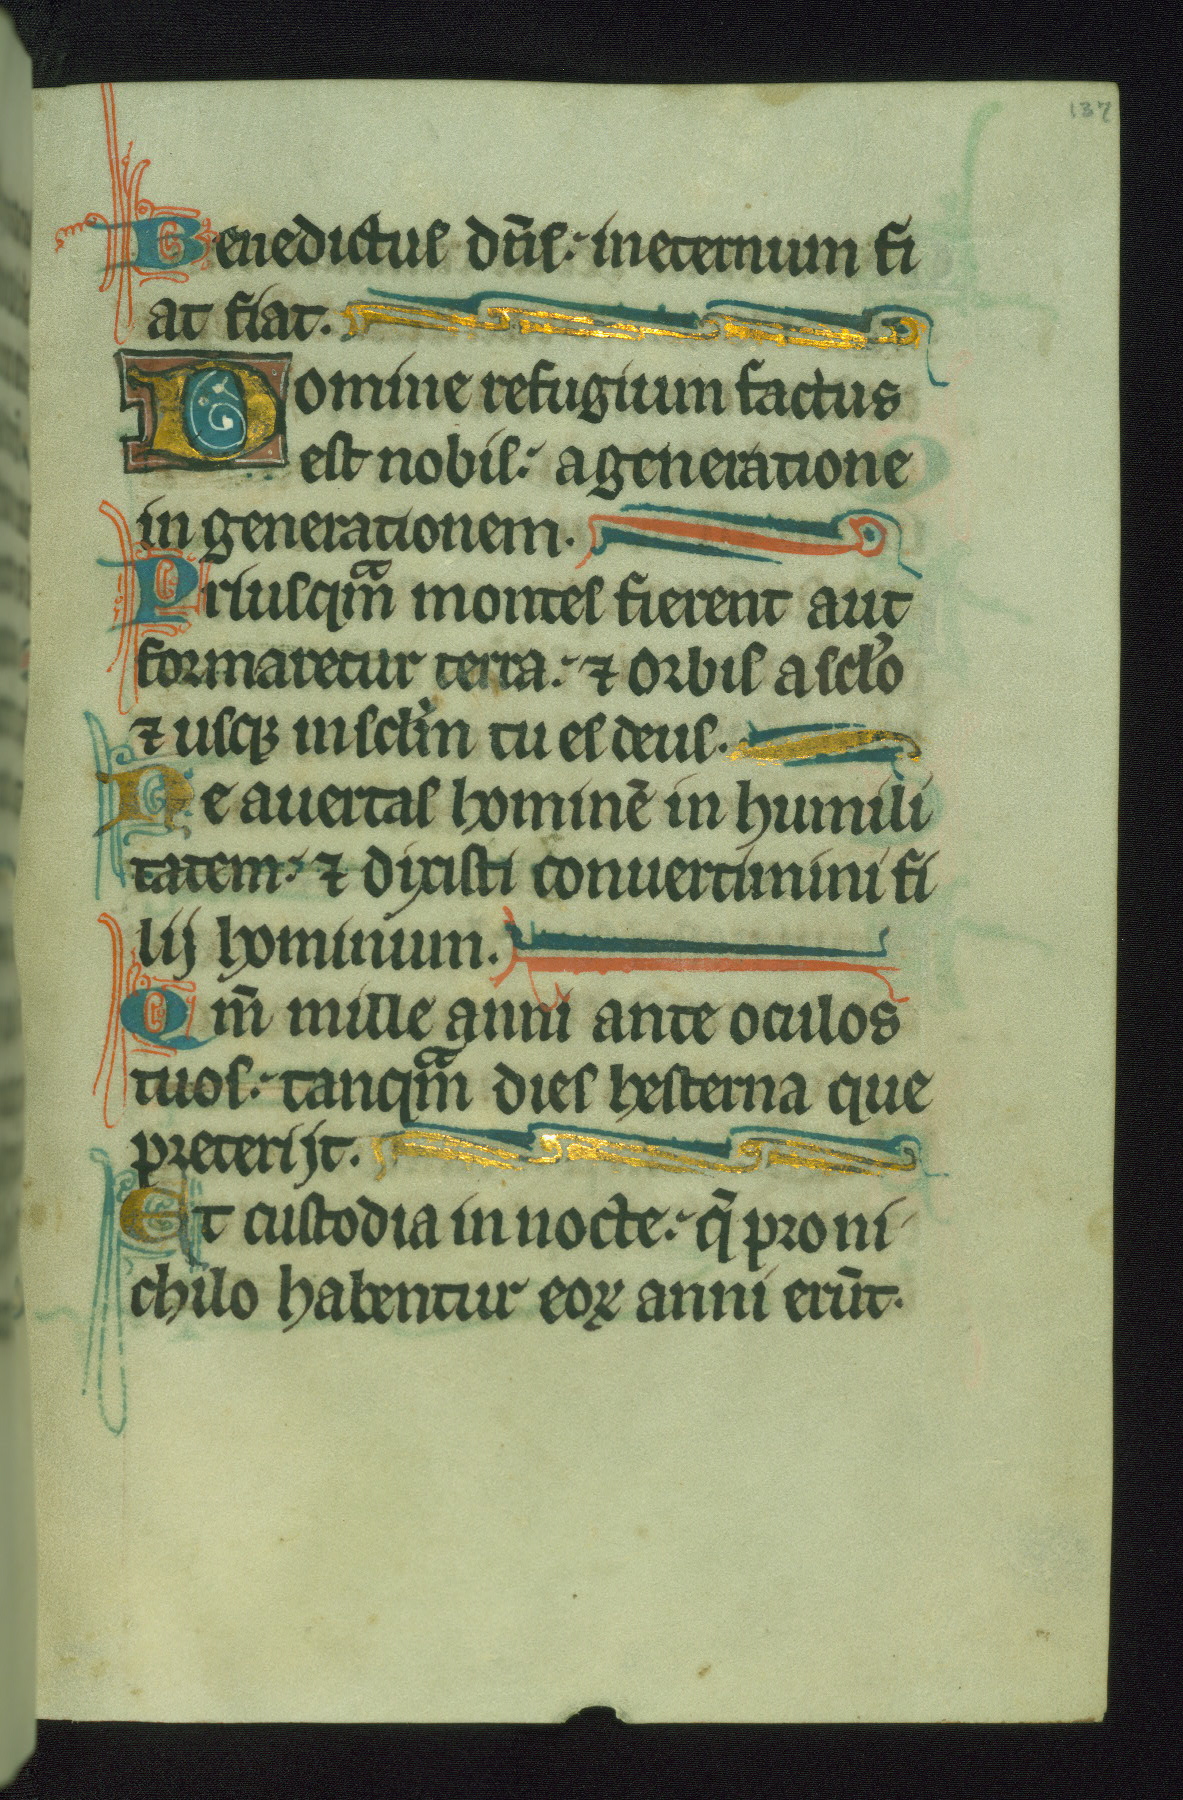 137
Benedictus dn̄s: in eternum fi
at fiat.
Domine refugium factus
est nobis: a generatione
in generationem.
Priusqᵃm montes fierent aut
formaretur terra: ⁊ orbis a sclo̓
⁊ usqꝫ in scl̓m tu es deus.
Ne auertas hominē in humili
tatem: ⁊ dixisti conuertimini fi
lij hominum.
Qm̄ mille anni ante oculos
tuos: tanqᵃm dies hesterna que
preterijt.
Et custodia in nocte: q̄ pro ni
chilo habentur eoꝝ anni erūt.